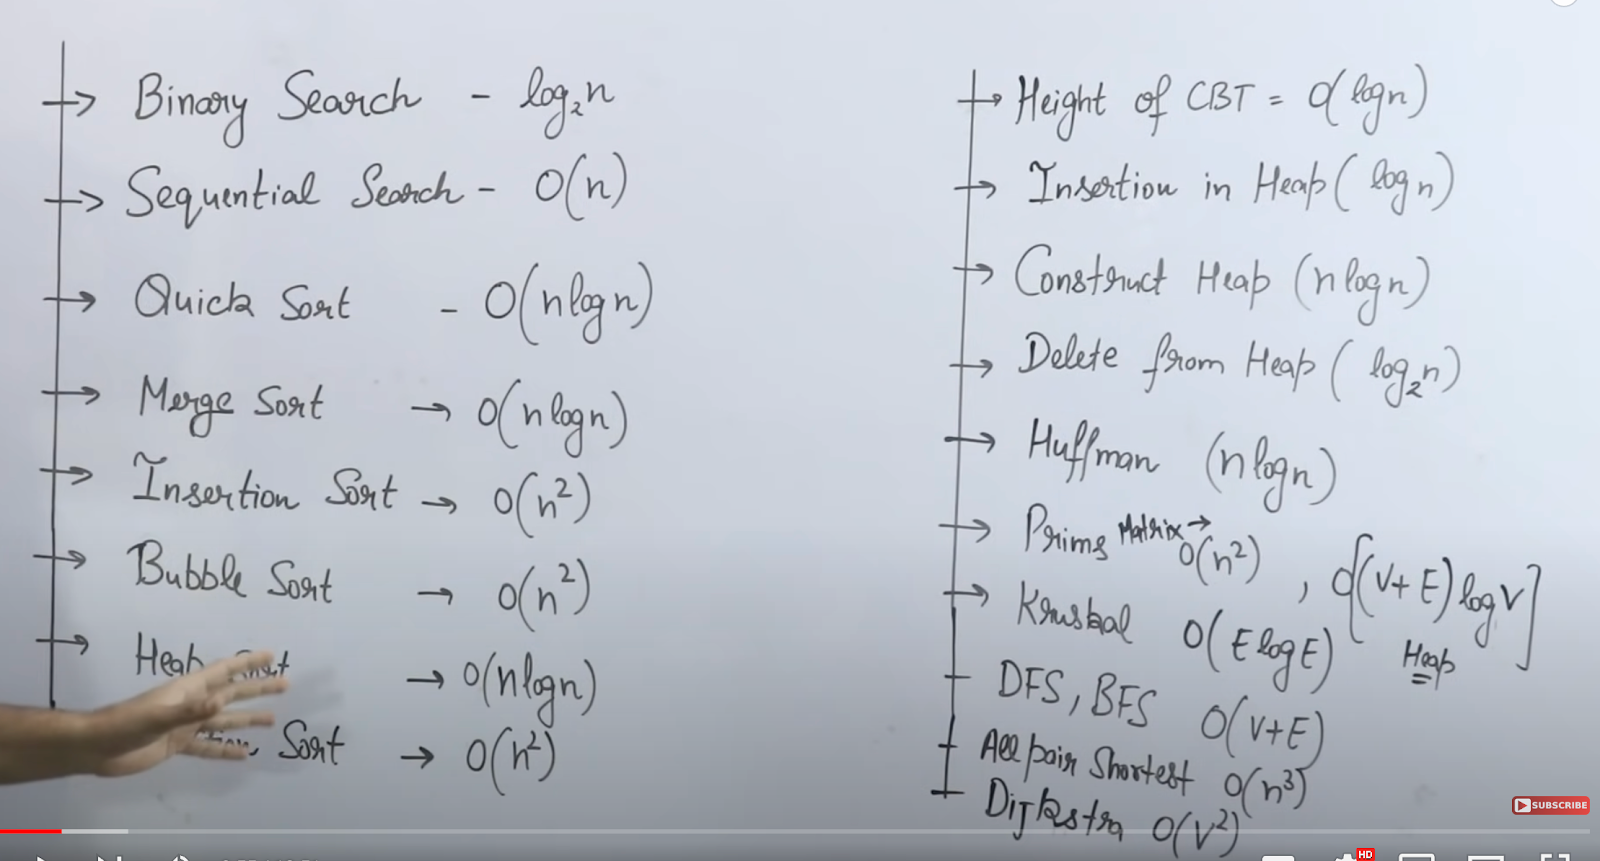 Binary Search - log₂n
Sequential Search - O(n)
Quick Sort - O(nlogn)
Merge Sort → O(nlogn)
Insertion Sort → O(n²)
Bubble Sort → O(n²)
Heap Sort → O(nlogn)
Sort → O(n²)
Height of CBT = O(logn)
Insertion in Heap (logn)
Construct Heap (nlogn)
Delete from Heap (log₂n)
Huffman (nlogn)
Prims Matrix → O(n²), O[(V+E)logV] Heap
Kruskal O(ElogE)
DFS, BFS O(V+E)
All pair Shortest O(n³)
Dijkstra O(V²)
SUBSCRIBE
HD